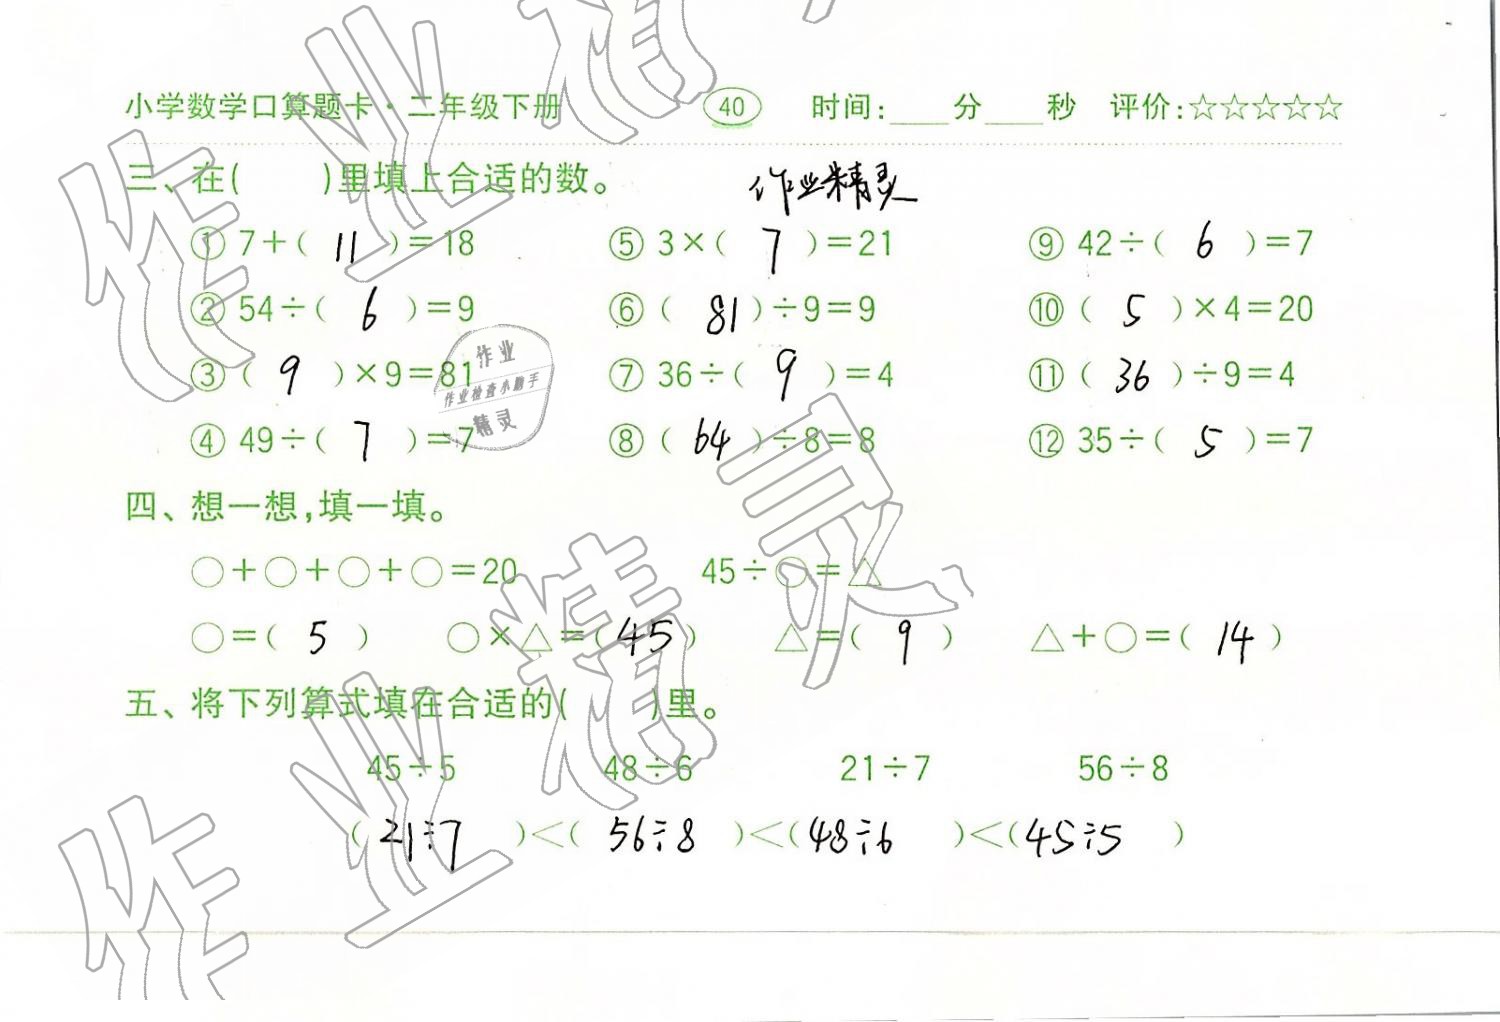 小学数学口算题卡·二年级下册 40 时间:____分____秒 评价:☆☆☆☆☆
三、在( )里填上合适的数。 作业精灵
① 7+( 11 )=18 ⑤ 3×( 7 )=21 ⑨ 42÷( 6 )=7
② 54÷( 6 )=9 ⑥ ( 81 )÷9=9 ⑩ ( 5 )×4=20
③ ( 9 )×9=81 ⑦ 36÷( 9 )=4 ⑪ ( 36 )÷9=4
④ 49÷( 7 )=7 ⑧ ( 64 )÷8=8 ⑫ 35÷( 5 )=7
作业
作业检查小助手
精灵
四、想一想,填一填。
○+○+○+○=20 45÷○=△
○=( 5 ) ○×△=( 45 ) △=( 9 ) △+○=( 14 )
五、将下列算式填在合适的( )里。
45÷5 48÷6 21÷7 56÷8
( 21÷7 )<( 56÷8 )<( 48÷6 )<( 45÷5 )
作业精灵
作业精灵